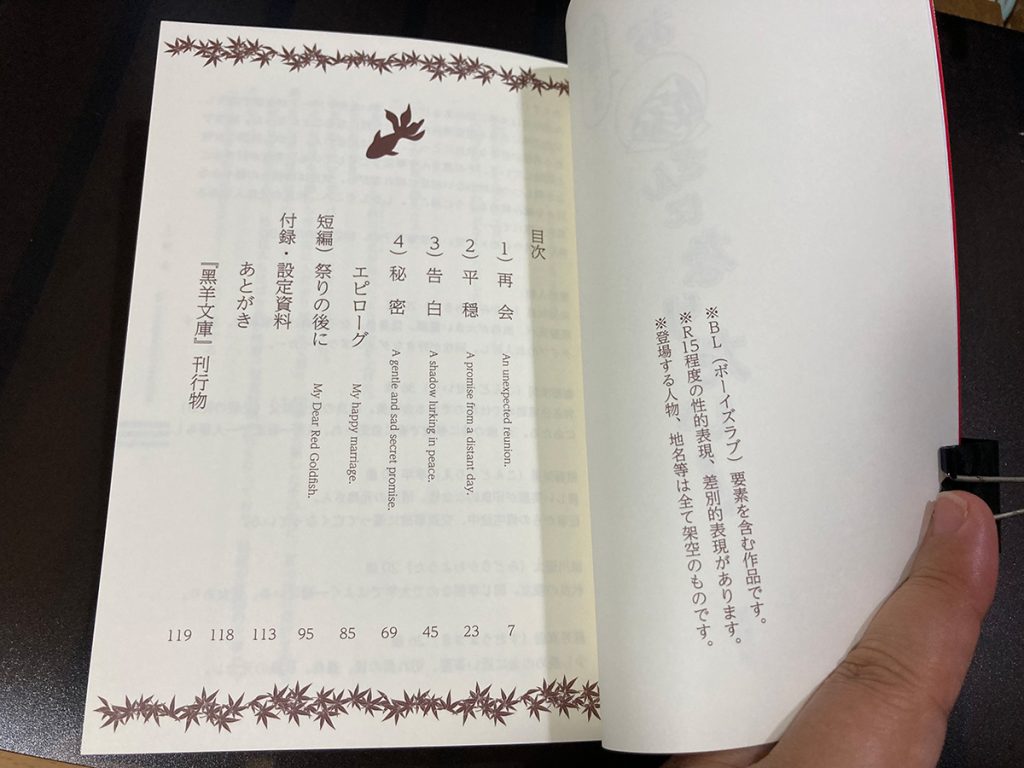 ※BL（ボーイズラブ）要素を含む作品です。
※R15程度の性的表現、差別的表現があります。
※登場する人物、地名等は全て架空のものです。
目次
1）再会 An unexpected reunion. 7
2）平穏 A promise from a distant day. 23
3）告白 A shadow lurking in peace. 45
4）秘密 A gentle and sad secret promise. 69
エピローグ My happy marriage. 85
短編）祭りの後に My Dear Red Goldfish. 95
付録・設定資料 113
あとがき 118
『黒羊文庫』刊行物 119